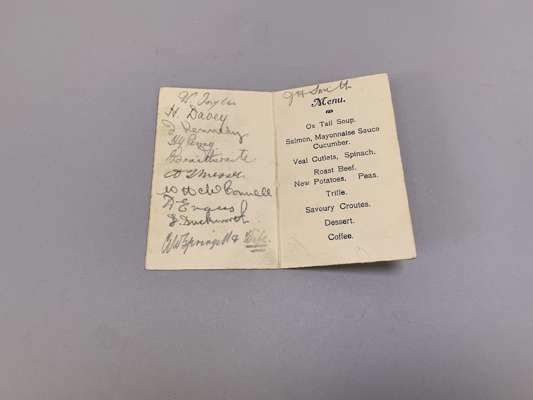 W Taylor
H. Davey
J Kennedy
Braithwaite
W H McConnell
A English
J Duckworth
E W Springett & Wife
J H Smith
Menu.
Ox Tail Soup.
Salmon, Mayonnaise Sauce
Cucumber.
Veal Cutlets, Spinach.
Roast Beef.
New Potatoes, Peas.
Trifle.
Savoury Croutes.
Dessert.
Coffee.